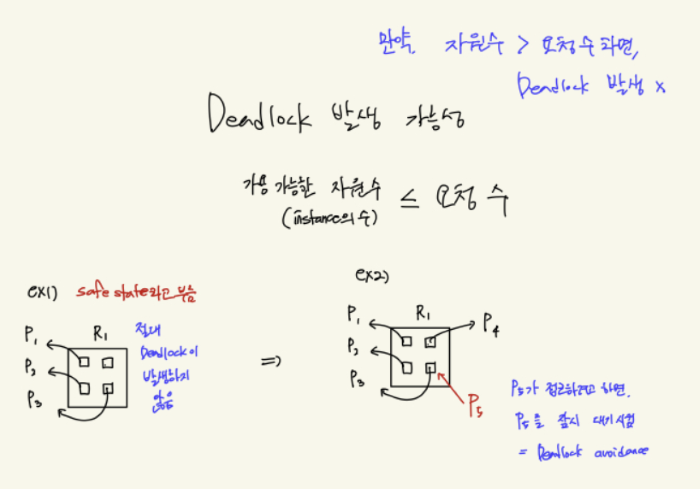 만약, 자원수 > 요청 수 라면,
Deadlock 발생 x
Deadlock 발생 가능성
가용 가능한 자원수 ≤ 요청 수
(instance의 수)
ex1) safe state라고 부름
P1
P2
P3
R1
절대
Deadlock이
발생하지
않음
⇒
ex2)
P1
P2
P3
R1
P4
P5
P5가 접근하려고 하면,
P5를 잠시 대기시킴
= Deadlock avoidance